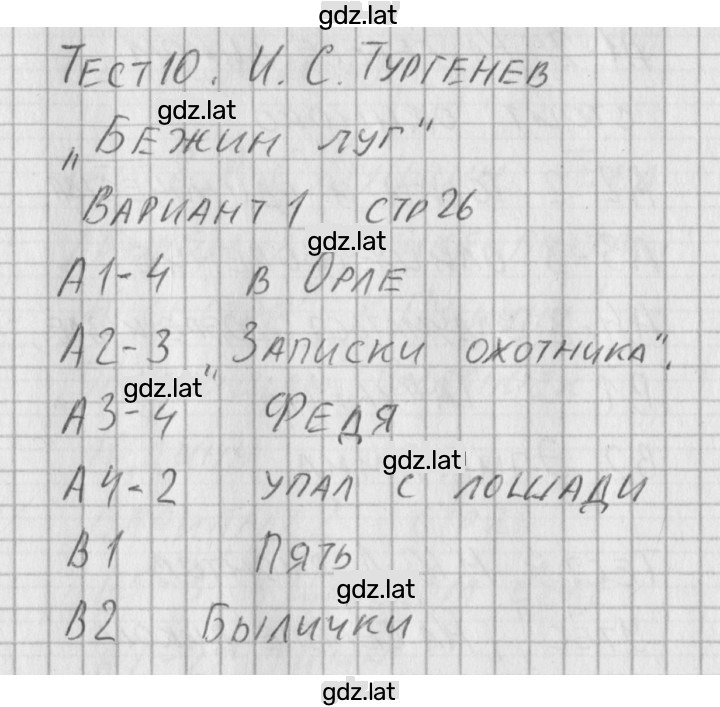 gdz.lat
ТЕСТ 10. И. С. ТУРГЕНЕВ
gdz.lat
„БЕЖИН ЛУГ"
ВАРИАНТ 1 СТР 26
gdz.lat
А1-4 В ОРЛЕ
А2-3 „ЗАПИСКИ ОХОТНИКА".
gdz.lat
А3-4 ФЕДЯ
gdz.lat
А4-2 УПАЛ С ЛОШАДИ
В1 ПЯТЬ
gdz.lat
В2 БЫЛИЧКИ
gdz.lat